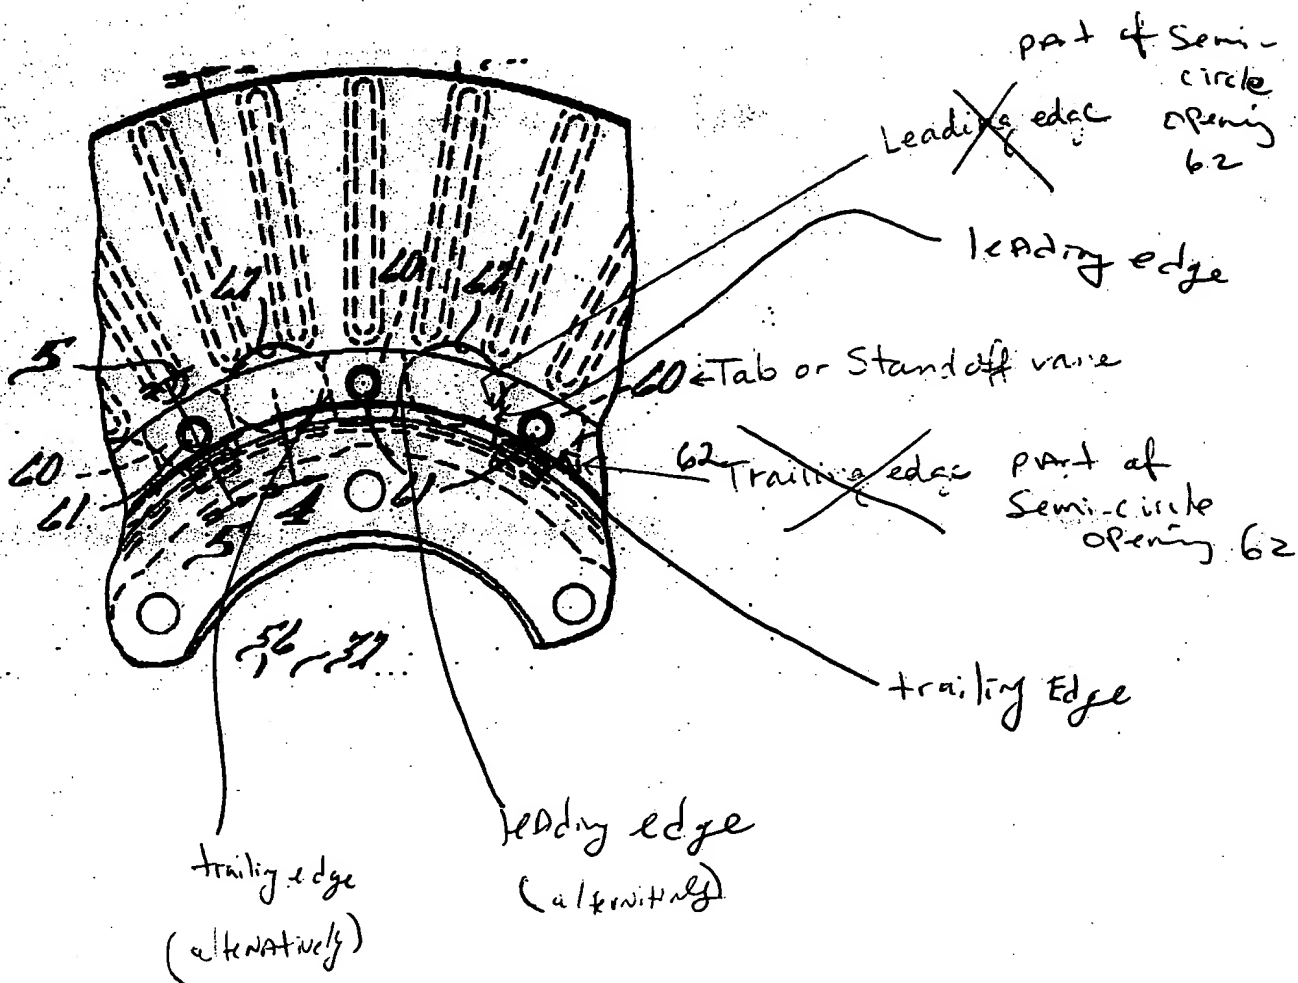 part of Semi-
circle
opening
62
Leading edge
leading edge
62
60
62
5
60
Tab or Standoff vane
60
61
5
4
61
62
Trailing edge
part of
Semi-circle
opening 62
56, 37
trailing Edge
leading edge
(alternitively)
trailing edge
(alternatively)